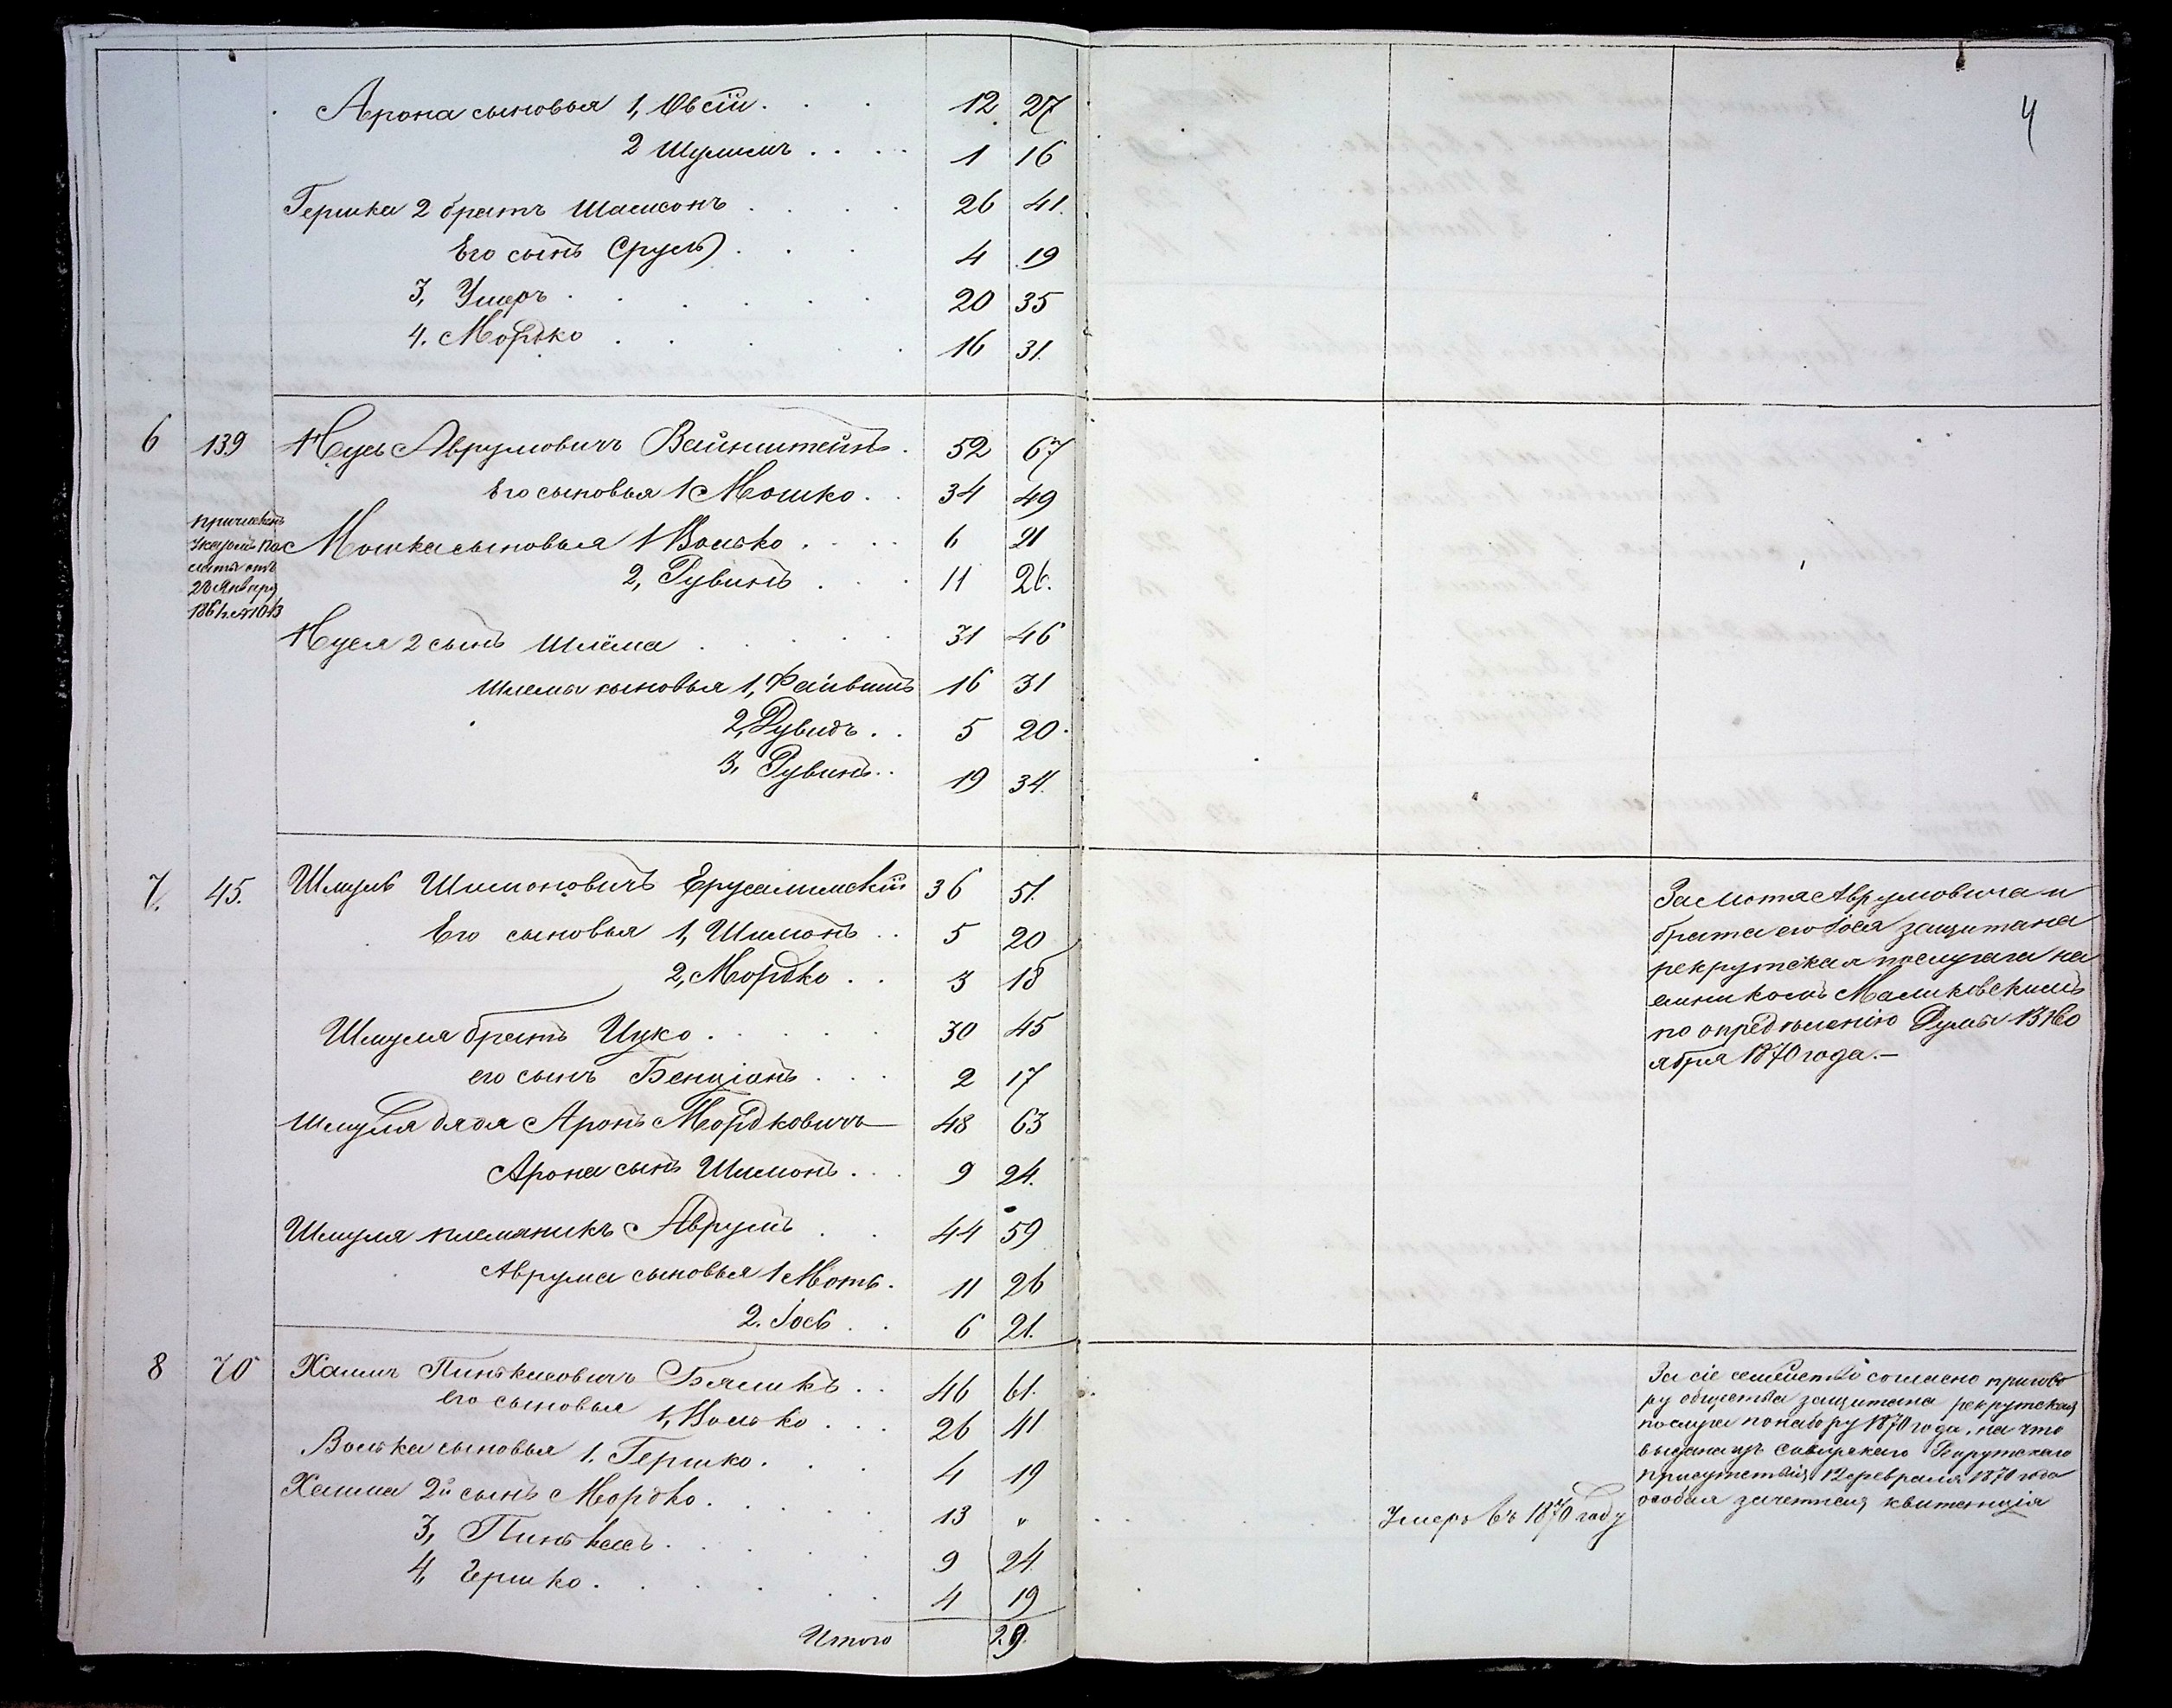 4
Арона сыновья 1, Овсій . . . 12 27
2 Шулимъ . . . . 1 16
Гершка 2 братъ Шамсонъ . . . . 26 41.
Его сынъ Сруль . . . 4 19
3, Ушеръ . . . . . . 20 35
4. Мордко . . . . . 16 31.
6 139 Нусь Аврумовичъ Вайнштейнъ . 52 67
Его сыновья 1 Мошко . . 34 49
причисленъ
Указомъ Па
латы отъ
20 Января
Мошка сыновья 1 Волько . . . . 6 21
2, Рувинъ . . . 11 26.
Нуся 2 сынъ Шлёма . . . . . 31 46
Шлемы сыновья 1, Файвишъ 16 31
2, Дувидъ . . 5 20.
3, Рувинъ . . 19 34.
7. 45. Шмуль Шимоновичъ Ерусалимскій 36 51.
Его сыновья 1, Шимонъ . . 5 20
2, Мордко . . 3 18
Шмуля братъ Ицко . . . . . 30 45
его сынъ Бенціонъ . . . 2 17
Шмуля дядя Аронъ Мордковичъ 48 63
Арона сынъ Шимонъ . . . 9 24.
Шмуля племяникъ Аврумъ . . 44 59
Аврума сыновья 1 Моть . 11 26
2. Іось . . 6 21.
За Мотя Аврумовича и
брата его Іося защитана
рекрутская послуга на
емникомъ Маликовскимъ
по опредѣленію Думы 13 Но
ября 1870 года. —
8 70 Хаимъ Пинькасовичъ Бяликъ . . 46 61.
его сыновья 1, Волько . . . 26 41
Волька сыновья 1. Гершко . . . 4 19
Хаима 2й сынъ Мордко . . . . . 13 „ Умеръ въ 1870 году
3, Пинькасъ . . . . . 9 24.
4, Гершко . . . . . . 4 19
Итого 29.
За сіе семейство согласно пригово
ру общества защитана рекрутская
послуга по набору 1870 года, на что
выдана изъ Рекрутскаго
присутствія 12 февраля 1870 года
особая зачетная квитанція